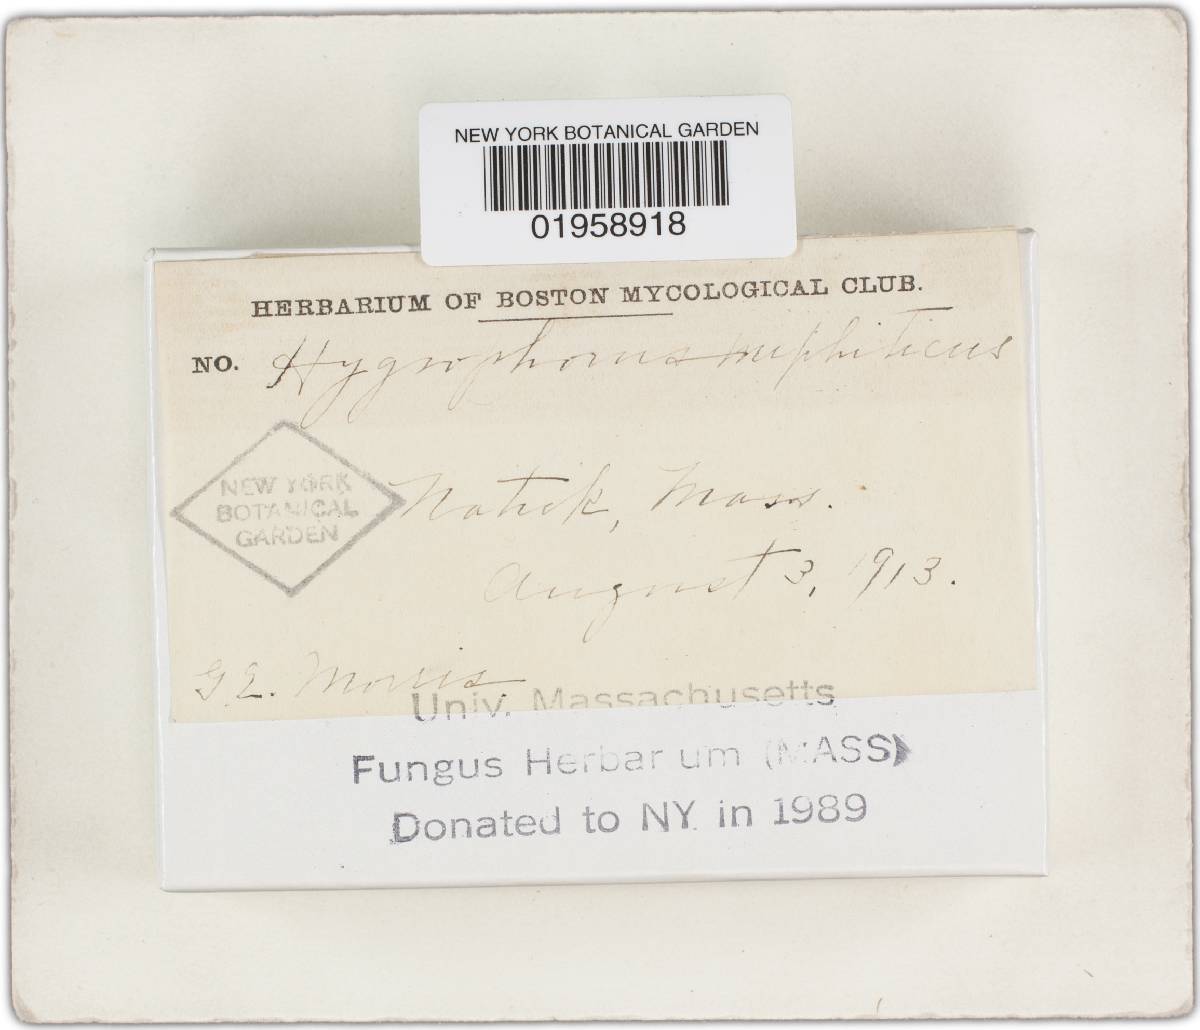 NEW YORK BOTANICAL GARDEN
01958918
HERBARIUM OF BOSTON MYCOLOGICAL CLUB.
NO. Hygrophorus mephiticus
NEW YORK
BOTANICAL
GARDEN
Natick, Mass.
August 3, 1913.
G.E. Morris
Univ. Massachusetts
Fungus Herbar um (MASS)
Donated to NY in 1989